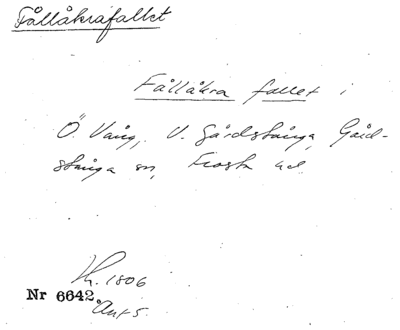 Fållåkrafallet
Fållåkra fallet i
Ö. Vång, V. Gårdstånga, Gård-
stånga sn, Frosta hd
1806
Nr 6642.
Akt 5.